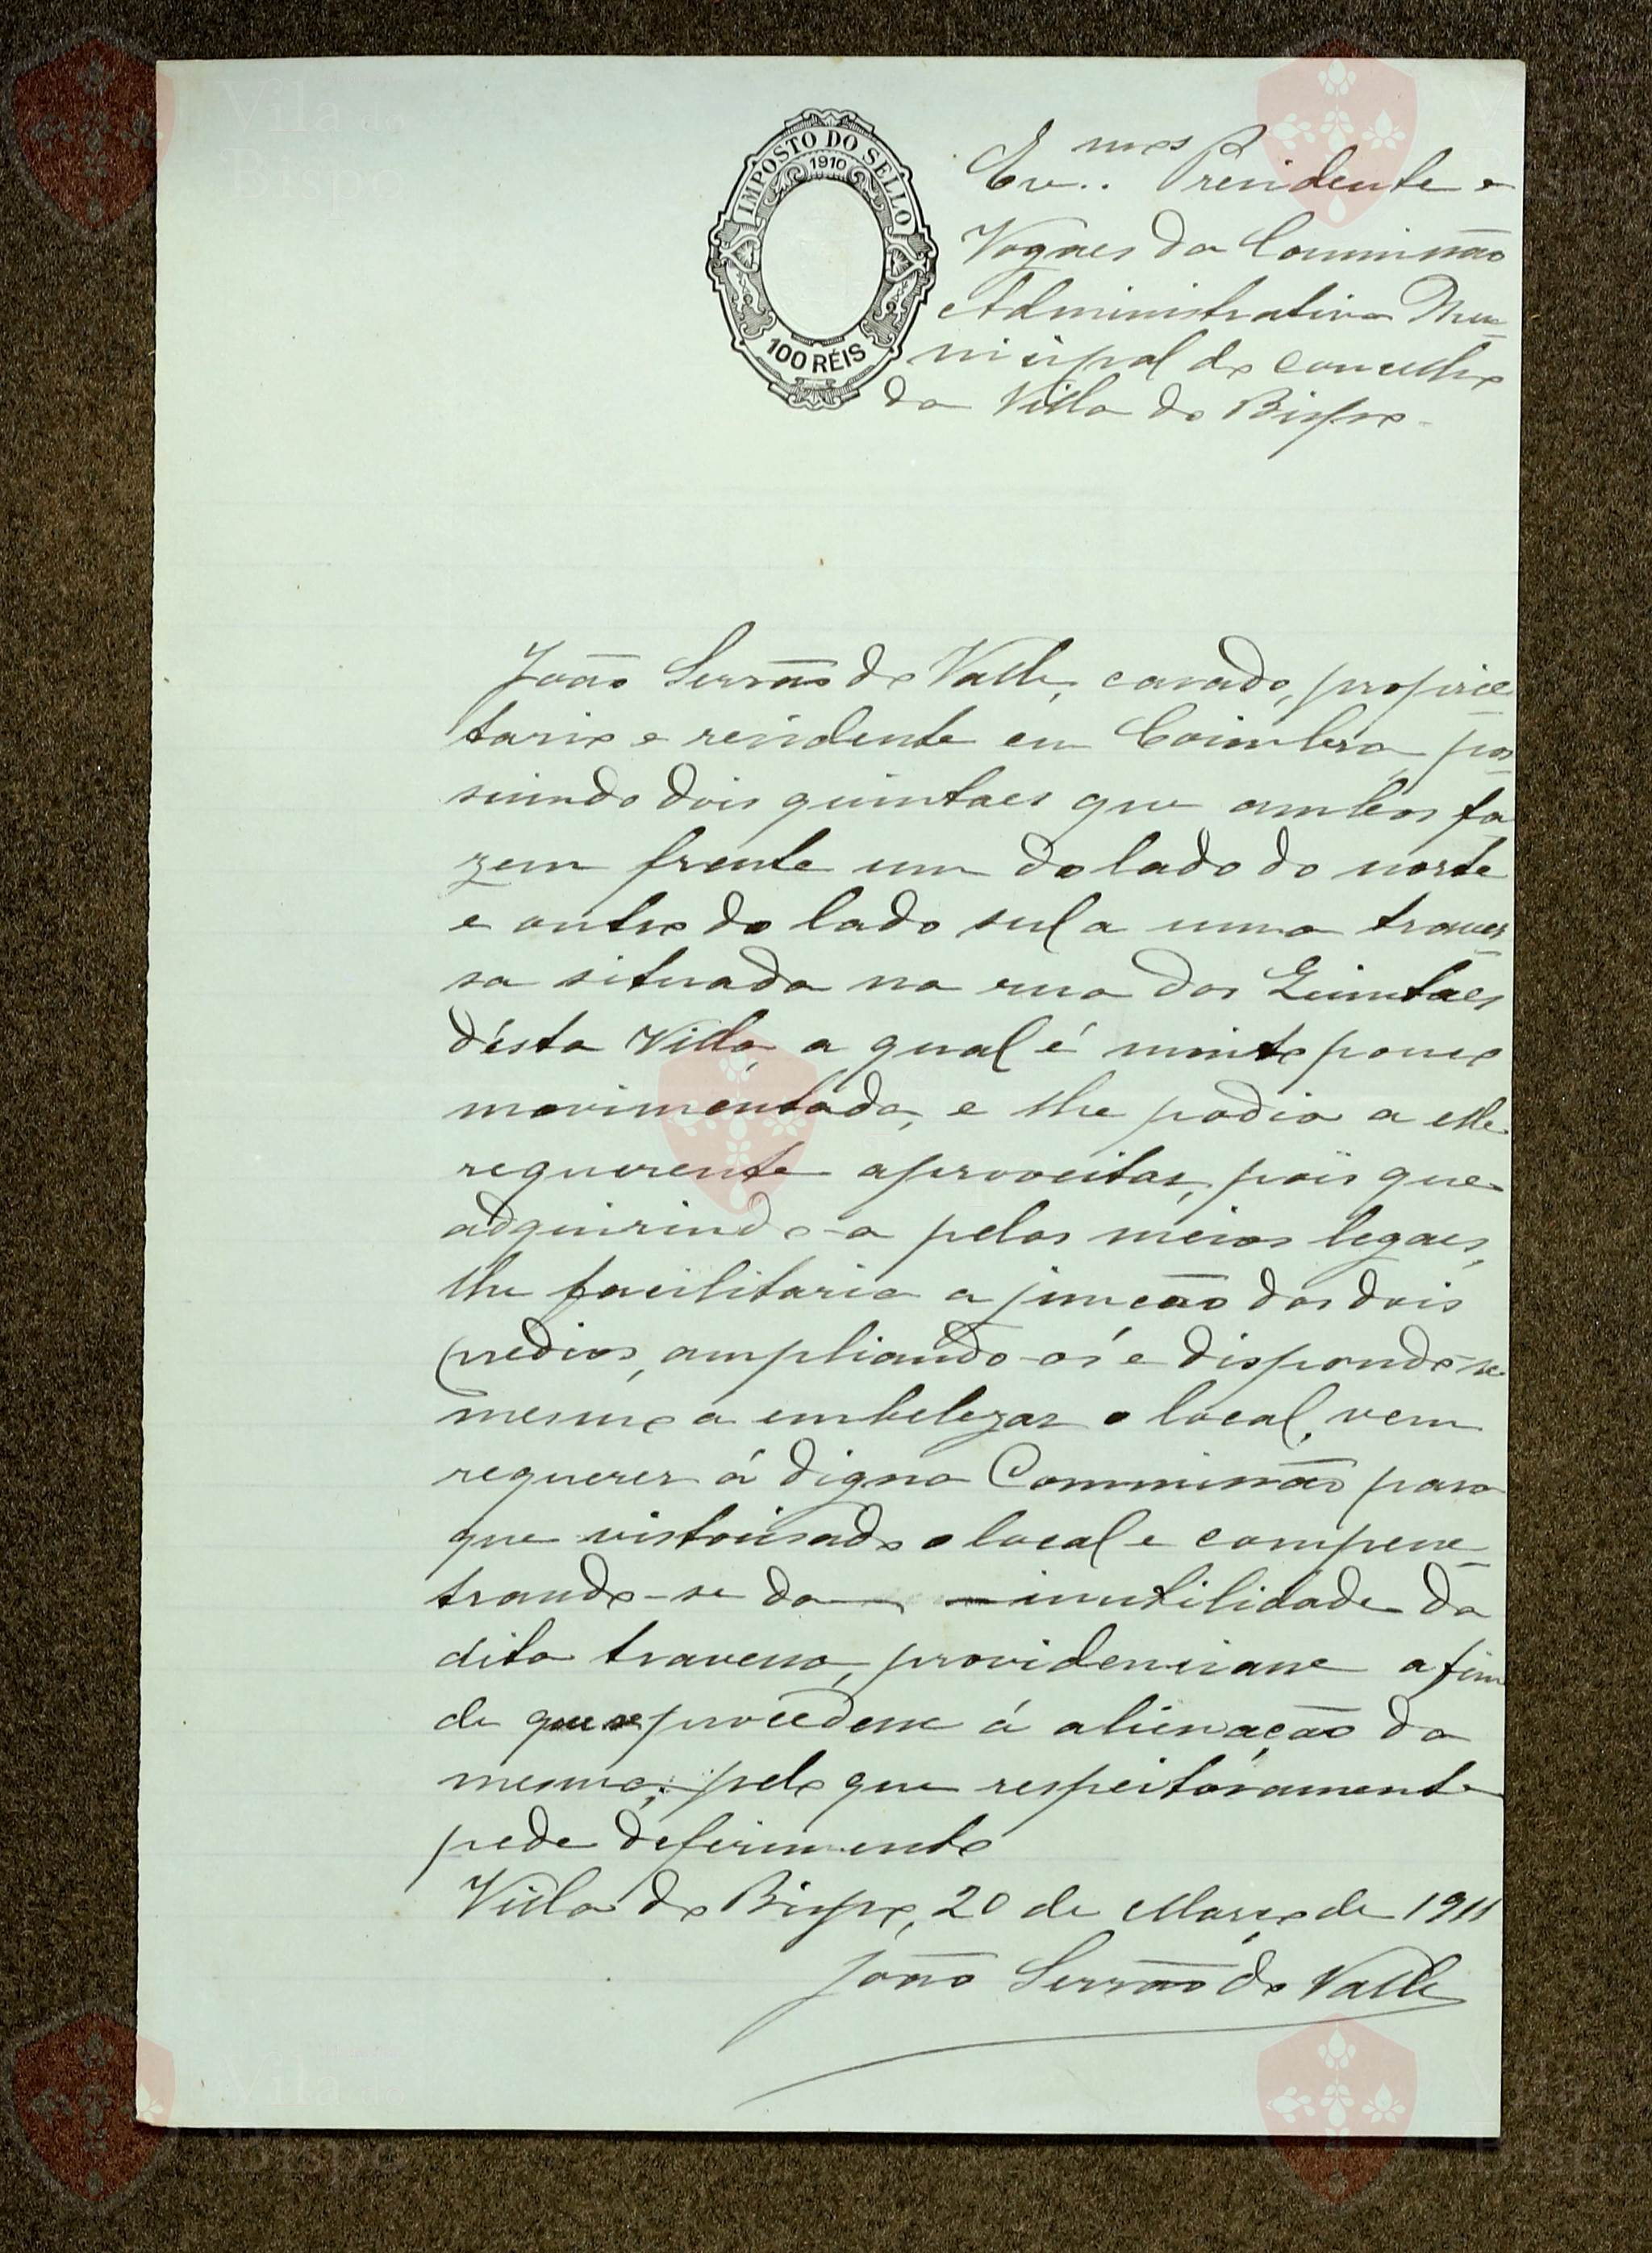 IMPOSTO DO SELLO
1910
100 RÉIS
Ex.mos Presidente e
Vogaes da Commissão
Administrativa Mu-
nicipal do concelho
da Villa do Bispo.
João Serrão do Valle, casado, proprie-
tario e residente em Coimbra, pos-
suindo dois quintaes que ambos fa-
zem frente um do lado do norte
e outro do lado sul a uma traves-
sa situada na rua dos Quintaes
d'ésta Villa a qual é muito pouco
movimentada, e lhe podia a elle
requerente aproveitar, pois que
adquirindo-a pelos meios legaes,
lhe facilitaria a juncão dos dois
predios, ampliando-os e dispondo-se
mesmo a embelezar o local, vem
requerer á digna Commissão para
que vistoriando o local e compene-
trando-se da inutilidade da
dita travessa, providenciasse afim
de que se procedesse á alienação da
mesma; pelo que respeitosamente
pede deferimento
Villa do Bispo, 20 de Março de 1911
João Serrão do Valle
Vila do
Bispo